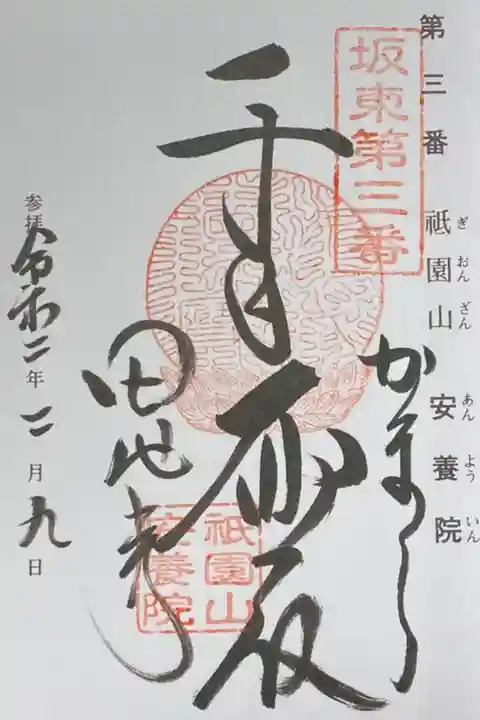 第三番 祇園山 安養院
ぎおんざん あんよういん
坂東第三番
かまくら
千手
祇園山
安養院
参拝 令和二年二月九日